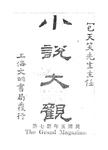 包天笑先生主任
小說大觀
上海文明書局發行
The Grand Magazine